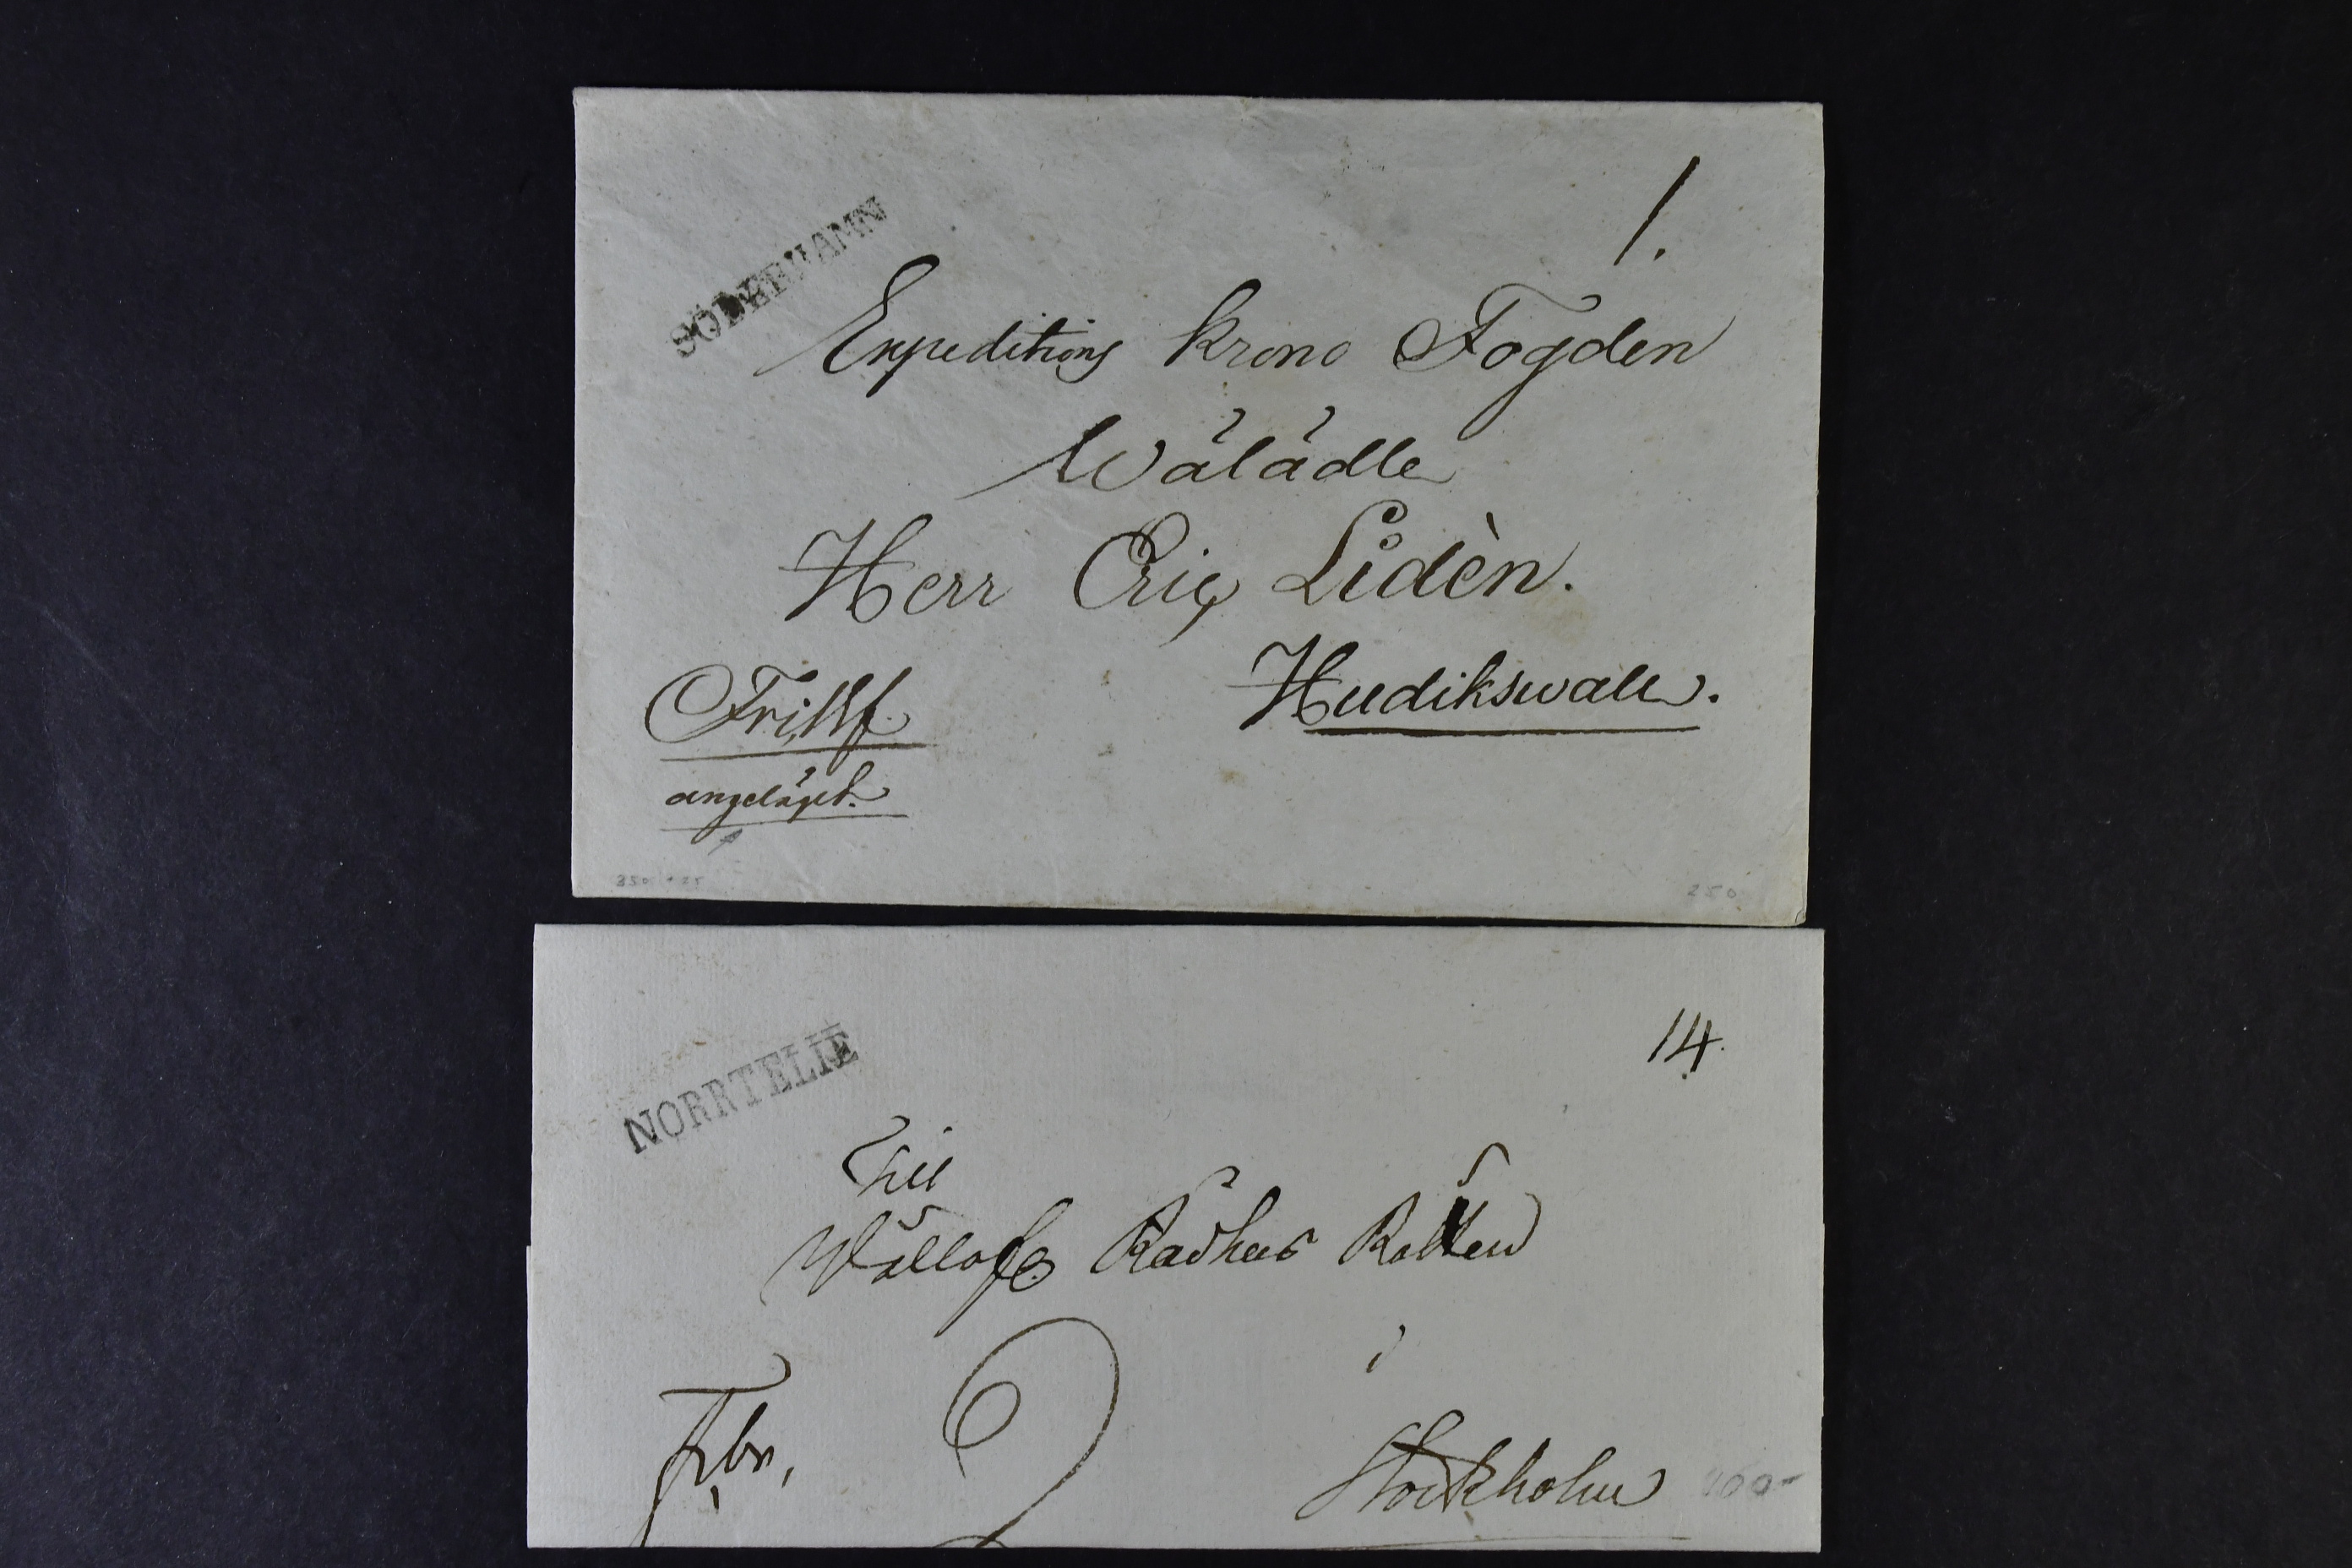 SÖDERHAMN
1.
Expeditions Krono Fogden
Wälädle
Herr Eric Lidèn.
Hudikswall.
Fri,
angeläget.
250
NORRTELJE
14.
Till
Wällofl. Rådhus Rätten
i
Frbr,
Stockholm